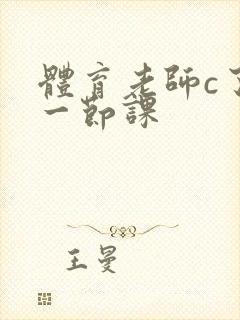 體育老師c了
一節課
王曼